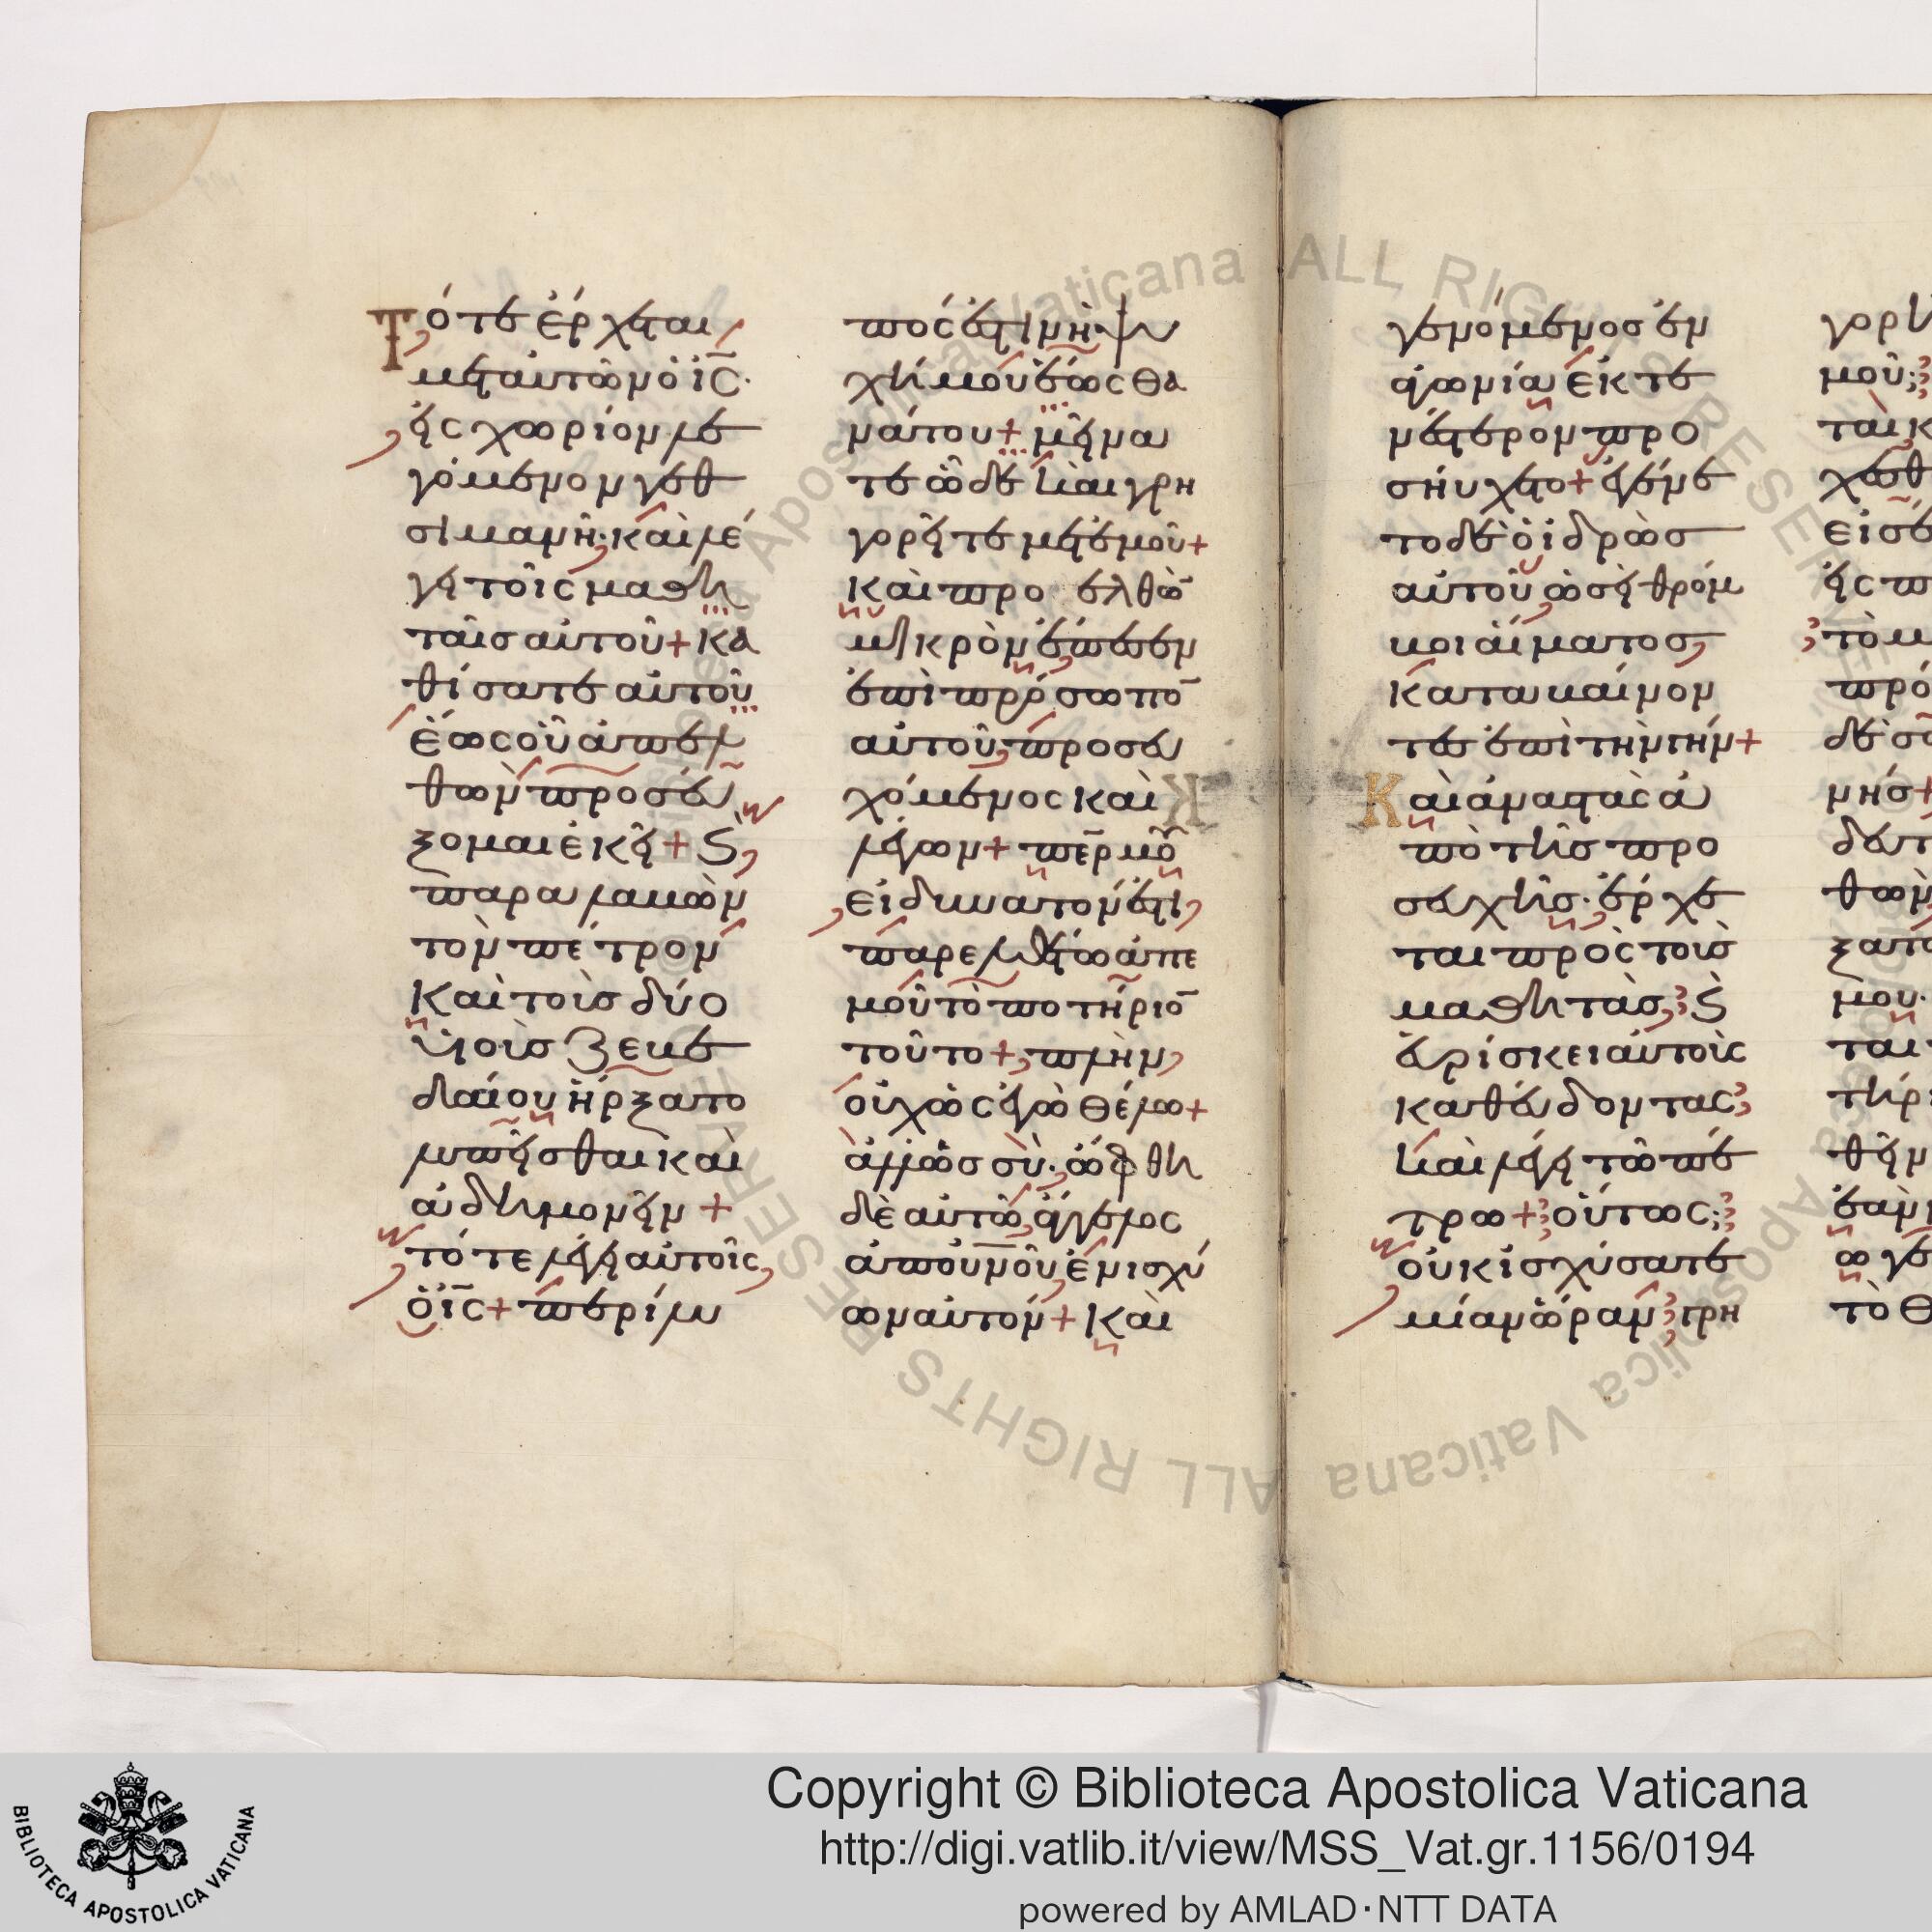 Τότε ἔρχεται
μετ αὐτῶν ὁ ις·
εἰς χωρίον λε
γόμενον γεθ
σιμανῆ· καὶ λέ
γει τοῖς μαθη
ταῖσ αὐτοῦ + κα
θίσατε αὐτοῦ
ἕως οὗ ἀπελ
θὼν προσεύ
ξομαι ἐκεῖ + ϗ
παραλαβὼν
τὸν πέτρον
καὶ τοὺσ δύο
υἱοὺσ Ζεβε
δαίου ἤρξατο
λυπεῖσθαι καὶ
ἀδημονεῖν +
τότε λέγει αὐτοῖς
ὁ ις + περίλυ
πος ἐστὶν ἡ ψυ
χή μου ἕως θα
νάτου + μείνα
τε ὧδε καὶ γρη
γορεῖτε μετ ἐμοῦ +
Καὶ προ ελθὼ
μικρὸν ἔπεσεν
ἐπὶ πρόσωπο
αὐτοῦ, προσευ
χόμενος καὶ
λέγων + περ μου
εἰ δυνατόν ἐστι,
παρελθέτω ἀπ ἐ
μοῦ τὸ ποτήριο
τοῦτο + πλὴν
οὐχ ὡς ἐγὼ θέλω +
ἀλλ ὡσ σύ· ὤφθη
δὲ αὐτῶ ἄγγελος
ἀπ ουνου ἐνισχύ
ων αὐτόν + καὶ
γενόμενοσ ἐν
ἀγωνία ἐκτε
νέστερον προ
σηύχετο + ἐγένε
το δὲ ὁ ἱδρὼσ
αὐτοῦ ὡσεὶ θρόμ
βοι αἵματοσ
καταβαίνον
τεσ ἐπὶ τὴν γῆν +
Καὶ ἀναστὰς ἀ
πὸ τῆσ προ
σευχῆσ· ἔρχε
ται πρὸς τοὺσ
μαθητὰσ; ϗ
εὑρίσκει αὐτοὺς
καθεύδοντας
καὶ λέγει τῶ πέ
τρω + οὕτως;
οὐκ ἰσχύσατε
μίαν ὥραν γρη
γορῆ
μοῦ;
ται κ
χεσθ
εἰσέ
εἰς π
τὸ μ
πρό
δὲ σ
νήσ +
δευτ
θὼν
ξατο
μου·
ται τ
τήρι
θεῖν
ἐὰν
ω γε
τὸ θ
Copyright © Biblioteca Apostolica Vaticana
http://digi.vatlib.it/view/MSS_Vat.gr.1156/0194
powered by AMLAD·NTT DATA
BIBLIOTECA APOSTOLICA VATICANA